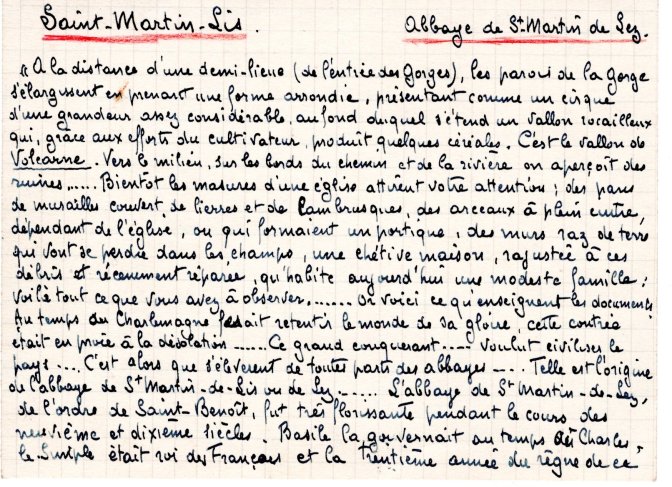 Saint-Martin-Lis. Abbaye de St Martin de Lez.
"A la distance d'une demi-lieue (de l'entrée des Gorges), les parois de la gorge
s'élargissent en prenant une forme arrondie, présentant comme un cirque
d'une grandeur assez considérable, au fond duquel s'étend un vallon rocailleux
qui, grâce aux efforts du cultivateur, produit quelques céréales. C'est le vallon de
Volcarne. Vers le milieu, sur les bords du chemin et de la rivière on aperçoit des
ruines,..... Bientot les masures d'une église attirent votre attention; des pans
de murailles couvert de lierres et de lambrusques, des arceaux à plein cintre,
dépendant de l'église, ou qui formaient un portique; des murs raz de terre
qui vont se perdre dans les champs, une chétive maison, rajustée à ces
débris et récemment réparée, qu'habite aujourd'hui une modeste famille;
voilà tout ce que vous avez à observer,....... Or voici ce qu'enseignent les documents
Au temps où Charlemagne faisait retentir le monde de sa gloire, cette contrée
était en proie à la désolation ...... Ce grand conquerant .... voulut civiliser le
pays .... C'est alors que s'élèverent de toutes parts des abbayes .... Telle est l'origine
de l'abbaye de St Martin-de-Lis ou de Lez ...... L'abbaye de St Martin-de-Lez,
de l'ordre de Saint-Benoît, fut très florissante pendant le cours des
neuvième et dixième siècles. Basile la gouvernait au temps où Charles
le Simple était roi des Français et la trentième année du règne de ce